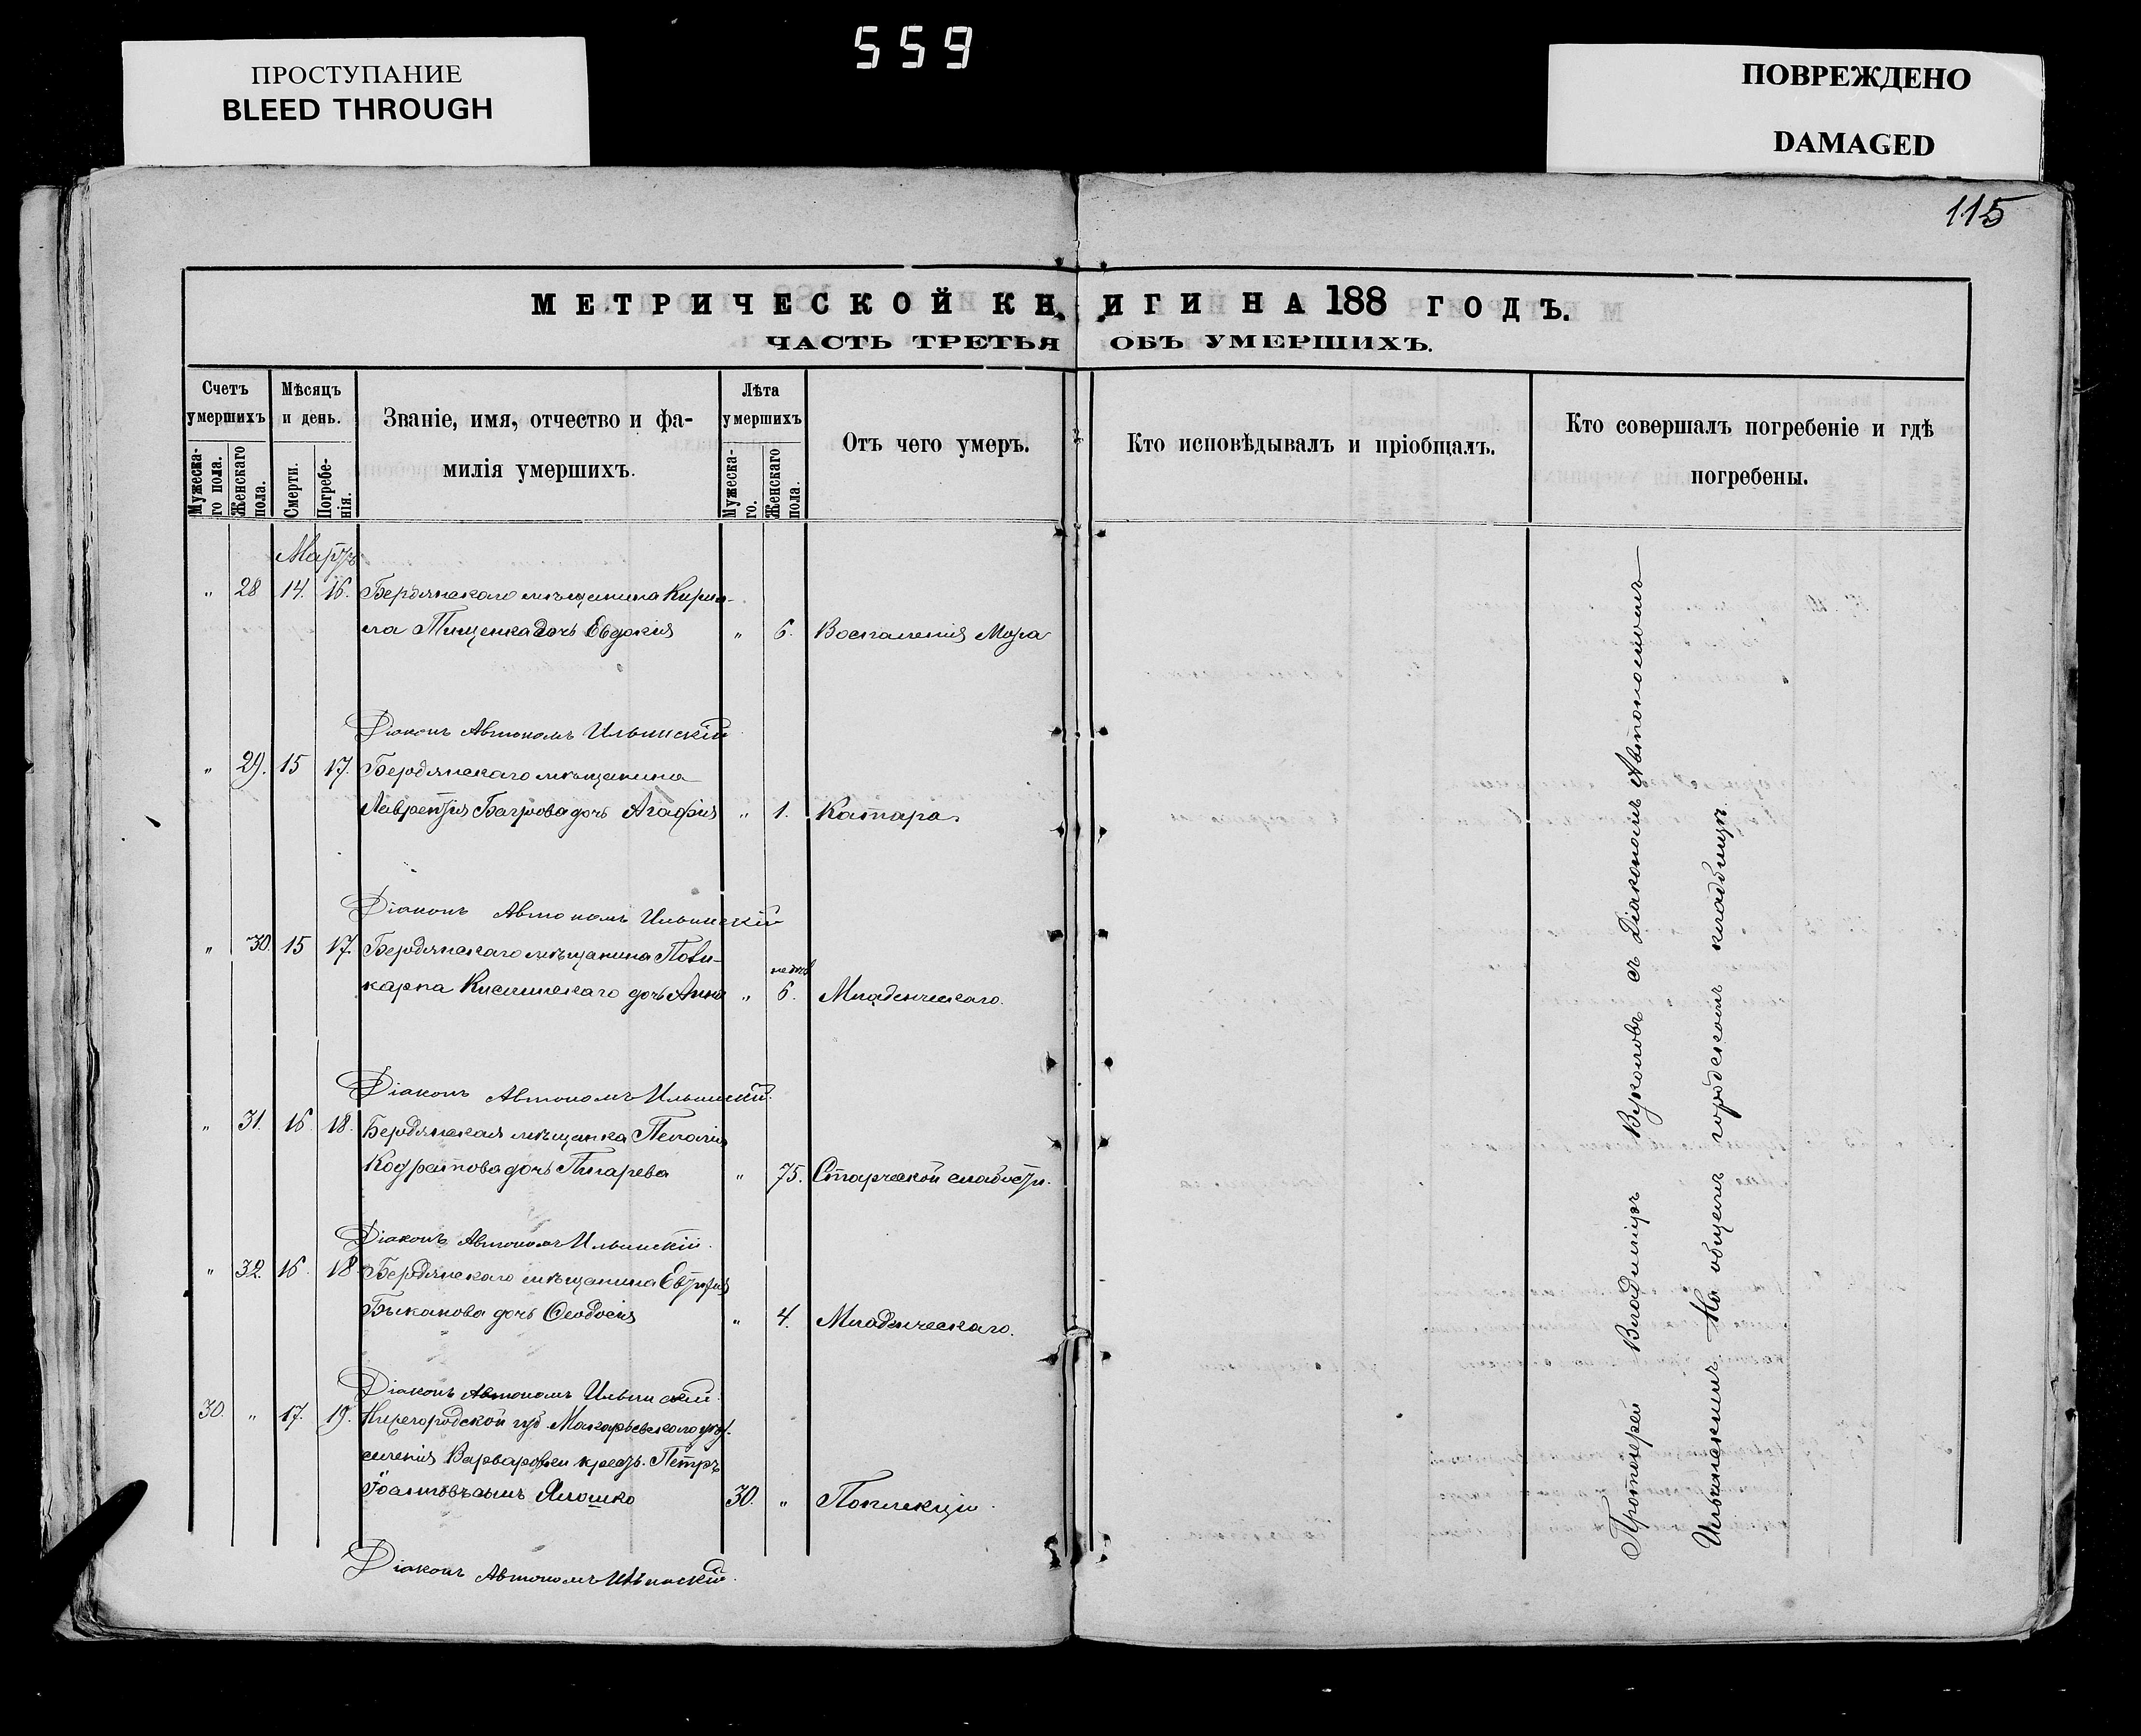 559
ПРОСТУПАНИЕ
BLEED THROUGH
ПОВРЕЖДЕНО
DAMAGED
115
МЕТРИЧЕСКОЙ КНИГИ НА 188 ГОДЪ.
ЧАСТЬ ТРЕТЬЯ ОБЪ УМЕРШИХЪ.
Счетъ умершихъ.
Мужеска-го пола.
Женскаго пола.
Мѣсяцъ и день.
Смерти.
Погребе-нія.
Званіе, имя, отчество и фа-
милія умершихъ.
Лѣта умершихъ
Мужеска-го.
Женскаго пола.
Отъ чего умеръ.
Кто исповѣдывалъ и пріобщалъ.
Кто совершалъ погребеніе и гдѣ
погребены.
Мартъ
" 28 14. 16. Бердянскаго мѣщанина Кирил-
ла Тищенка дочь Евдокия " 6. Воспаления Мозга
Діаконъ Автономъ Ильинскій
" 29. 15 17. Бердянскаго мѣщанина
Лаврентия Багрова дочь Агафия " 1. Катара.
Діаконъ Автономъ Ильинскій
" 30. 15 17. Бердянскаго мѣщанина Поли-
карпа дочь Анна " 6. Младенческаго.
Діаконъ Автономъ Ильинскій.
" 31. 16. 18. Бердянская мѣщанка Пелагия
Кодратова дочь Писарева " 75. Старческой слабости.
Діаконъ Автономъ Ильинскій.
" 32. 16. 18. Бердянскаго мѣщанина
Быканова дочь Феодосия " 4. Младенческаго.
Діаконъ Автономъ Ильинскій.
30. " 17. 19. Нижегородской губ. Макарьевскаго
селения крест. Петръ
сынъ 30. "
Діаконъ Автономъ Ильинскій.
Протоіерей Владимиръ Вуколовъ съ Діакономъ Автономомъ
Ильинскимъ. На общемъ городскомъ кладбищѣ.